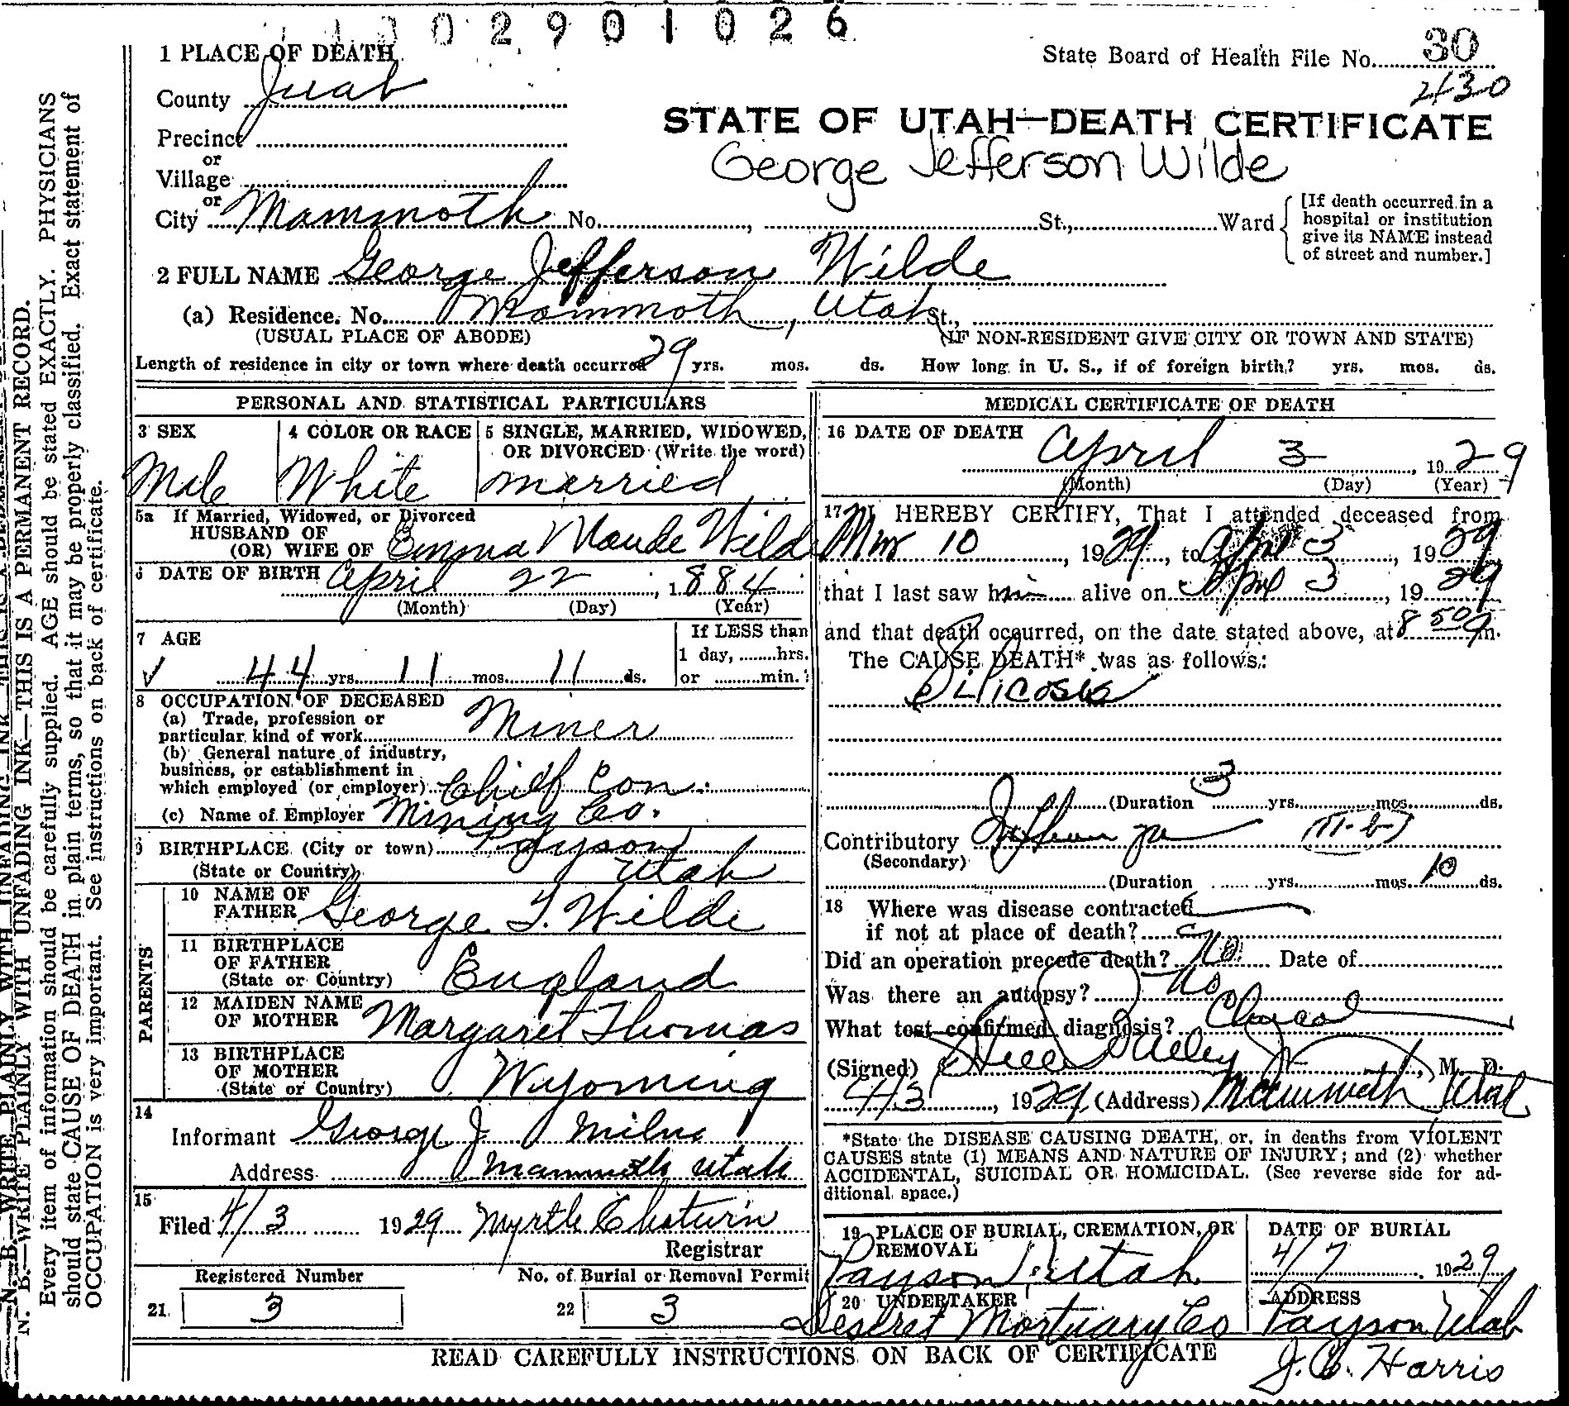 0 2 9 0 1 0 2 6
1 PLACE OF DEATH
State Board of Health File No. 30
430
County Juab
STATE OF UTAH—DEATH CERTIFICATE
Precinct
George Jefferson Wilde
or
Village
or
City Mammoth No. , St., Ward
[If death occurred in a
hospital or institution
give its NAME instead
of street and number.]
2 FULL NAME George Jefferson Wilde
(a) Residence. No. Mammoth, Utah St.,
(USUAL PLACE OF ABODE) (IF NON-RESIDENT GIVE CITY OR TOWN AND STATE)
Length of residence in city or town where death occurred 29 yrs. mos. ds. How long in U. S., if of foreign birth? yrs. mos. ds.
PERSONAL AND STATISTICAL PARTICULARS
3 SEX
Male
4 COLOR OR RACE
White
5 SINGLE, MARRIED, WIDOWED,
OR DIVORCED (Write the word)
married
5a If Married, Widowed, or Divorced
HUSBAND OF
(OR) WIFE OF Emma Maude Wilde
6 DATE OF BIRTH April 22, 1884
(Month) (Day) (Year)
7 AGE
44 yrs. 11 mos. 11 ds.
If LESS than
1 day, hrs.
or min.
8 OCCUPATION OF DECEASED
(a) Trade, profession or
particular kind of work Miner
(b) General nature of industry,
business, or establishment in
which employed (or employer) Chief Con.
(c) Name of Employer Mining Co.
9 BIRTHPLACE (City or town) Payson
(State or Country) Utah
PARENTS
10 NAME OF
FATHER George T. Wilde
11 BIRTHPLACE
OF FATHER
(State or Country) England
12 MAIDEN NAME
OF MOTHER Margaret Thomas
13 BIRTHPLACE
OF MOTHER
(State or Country) Wyoming
14
Informant George J
Address Mammoth Utah
15
Filed 4/3 1929 Myrtle
Registrar
Registered Number
21 3
No. of Burial or Removal Permit
22 3
MEDICAL CERTIFICATE OF DEATH
16 DATE OF DEATH April 3, 1929
(Month) (Day) (Year)
17 I HEREBY CERTIFY, That I attended deceased from
Mar 10, 1929, to April 3, 1929
that I last saw him alive on April 3, 1929
and that death occurred, on the date stated above, at 8 50 m.
The CAUSE DEATH* was as follows:
Silicosis
(Duration 3 yrs. mos. ds.
Contributory Influenza
(Secondary)
(Duration yrs. mos. 10 ds.
18 Where was disease contracted
if not at place of death?
Did an operation precede death? No. Date of
Was there an autopsy? No
What test confirmed diagnosis?
(Signed) M. D.
4/3, 1929 (Address) Mammoth Utah
*State the DISEASE CAUSING DEATH, or, in deaths from VIOLENT
CAUSES state (1) MEANS AND NATURE OF INJURY; and (2) whether
ACCIDENTAL, SUICIDAL OR HOMICIDAL. (See reverse side for ad-
ditional space.)
19 PLACE OF BURIAL, CREMATION, OR
REMOVAL
Payson Utah
DATE OF BURIAL
4/7, 1929
20 UNDERTAKER
Deseret Mortuary Co
ADDRESS
Payson Utah
READ CAREFULLY INSTRUCTIONS ON BACK OF CERTIFICATE
J. C. Harris
N. B.—WRITE PLAINLY WITH UNFADING INK—THIS IS A PERMANENT RECORD.
Every item of information should be carefully supplied. AGE should be stated EXACTLY. PHYSICIANS
should state CAUSE OF DEATH in plain terms, so that it may be properly classified. Exact statement of
OCCUPATION is very important. See instructions on back of certificate.